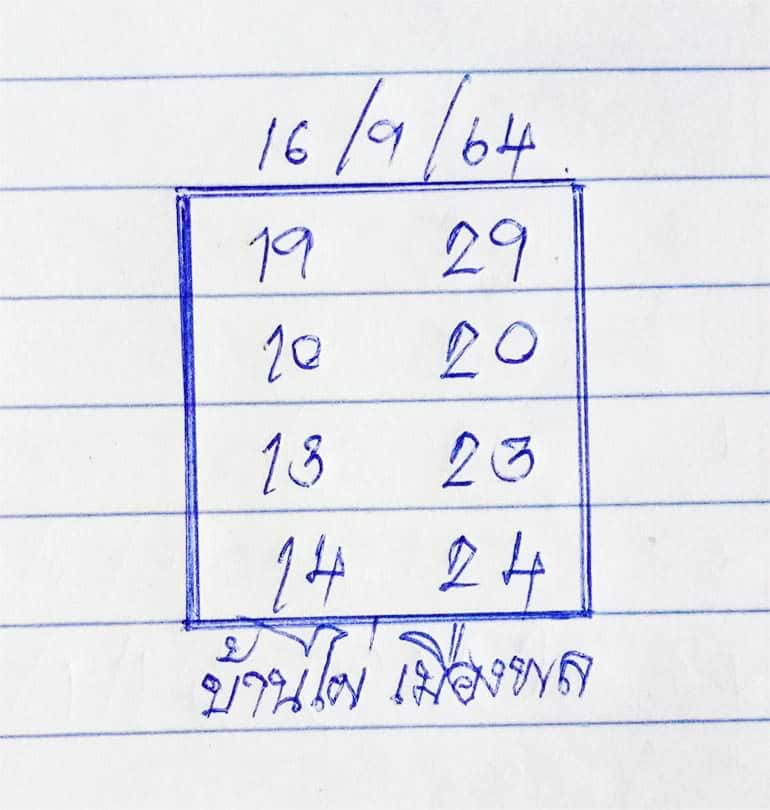 16/9/64
19 29
10 20
13 23
14 24
บ้านไผ่ เมืองพล